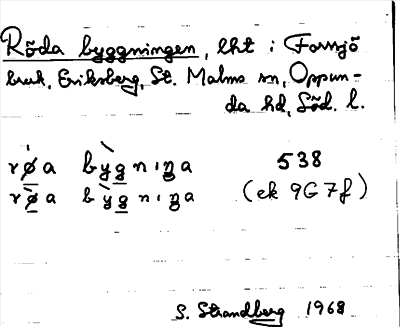 Röda byggningen, lht i Forssjö
bruk, Eriksberg, St. Malms sn, Oppun-
da hd, Söd. l.
røa bygnıŋa 538
røa bygnıŋa (ek 9G 7f)
S. Strandberg 1968